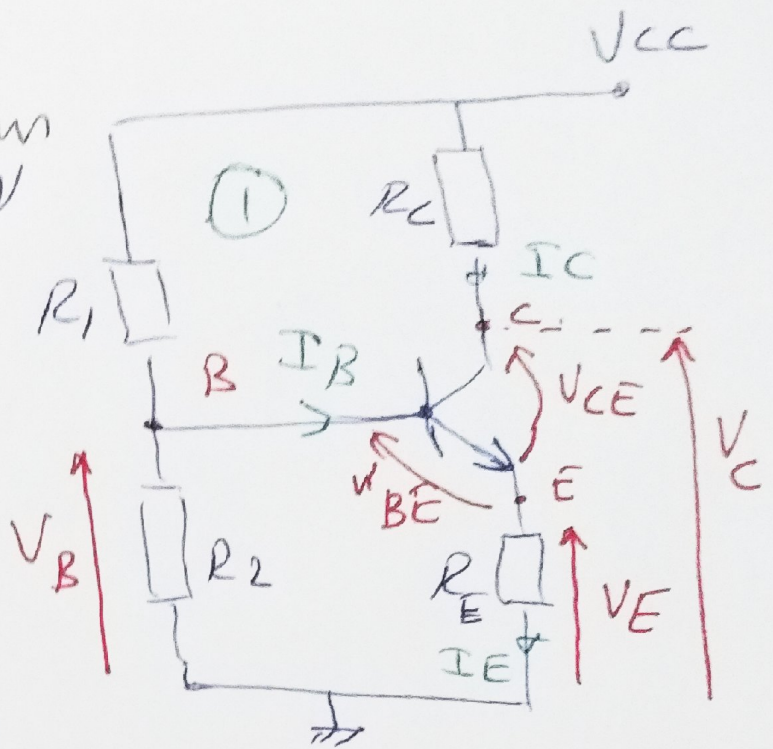 VCC
1
RC
IC
R1
C
B
IB
VCE
VC
VBE
E
VB
R2
RE
VE
IE